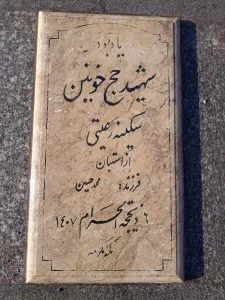 یادبود
شهید حج خونین
سکینه رعیتی
از استهبان
فرزند: محمدحسین
۶ ذیحجة الحرام ۱۴۰۷
مکه مکرمه